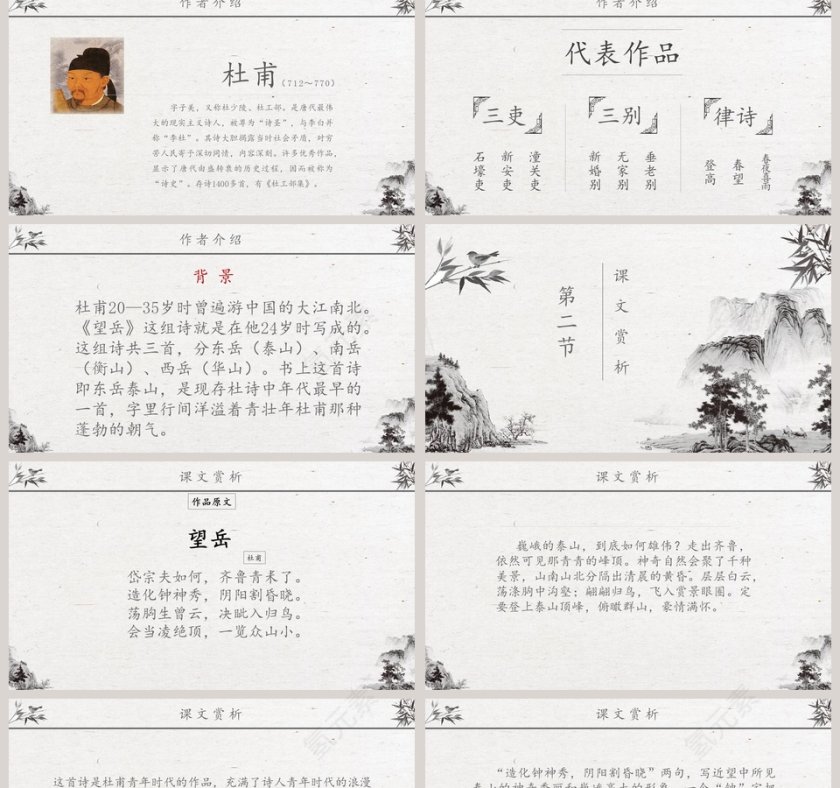 作者介绍
杜甫（712～770）
字子美，又称杜少陵、杜工部。是唐代最伟
大的现实主义诗人，被尊为“诗圣”，与李白并
称“李杜”。其诗大胆揭露当时社会矛盾，对穷
苦人民寄予深切同情，内容深刻。许多优秀作品，
显示了唐代由盛转衰的历史过程，因而被称为
“诗史”。存诗1400多首，有《杜工部集》。
作者介绍
代表作品
三吏
三别
律诗
石壕吏
新安吏
潼关吏
新婚别
无家别
垂老别
登高
春望
春夜喜雨
作者介绍
背景
杜甫20—35岁时曾遍游中国的大江南北。
《望岳》这组诗就是在他24岁时写成的。
这组诗共三首，分东岳（泰山）、南岳
（衡山）、西岳（华山）。书上这首诗
即东岳泰山，是现存杜诗中年代最早的
一首，字里行间洋溢着青壮年杜甫那种
蓬勃的朝气。
第二节
课文赏析
课文赏析
作品原文
望岳
杜甫
岱宗夫如何，齐鲁青未了。
造化钟神秀，阴阳割昏晓。
荡胸生曾云，决眦入归鸟。
会当凌绝顶，一览众山小。
课文赏析
巍峨的泰山，到底如何雄伟？走出齐鲁，
依然可见那青青的峰顶。神奇自然会聚了千种
美景，山南山北分隔出清晨的黄昏。层层白云，
荡涤胸中沟壑；翩翩归鸟，飞入赏景眼圈。定
要登上泰山顶峰，俯瞰群山，豪情满怀。
课文赏析
这首诗是杜甫青年时代的作品，充满了诗人青年时代的浪漫
课文赏析
“造化钟神秀，阴阳割昏晓”两句，写近望中所见
氢元素
氢元素